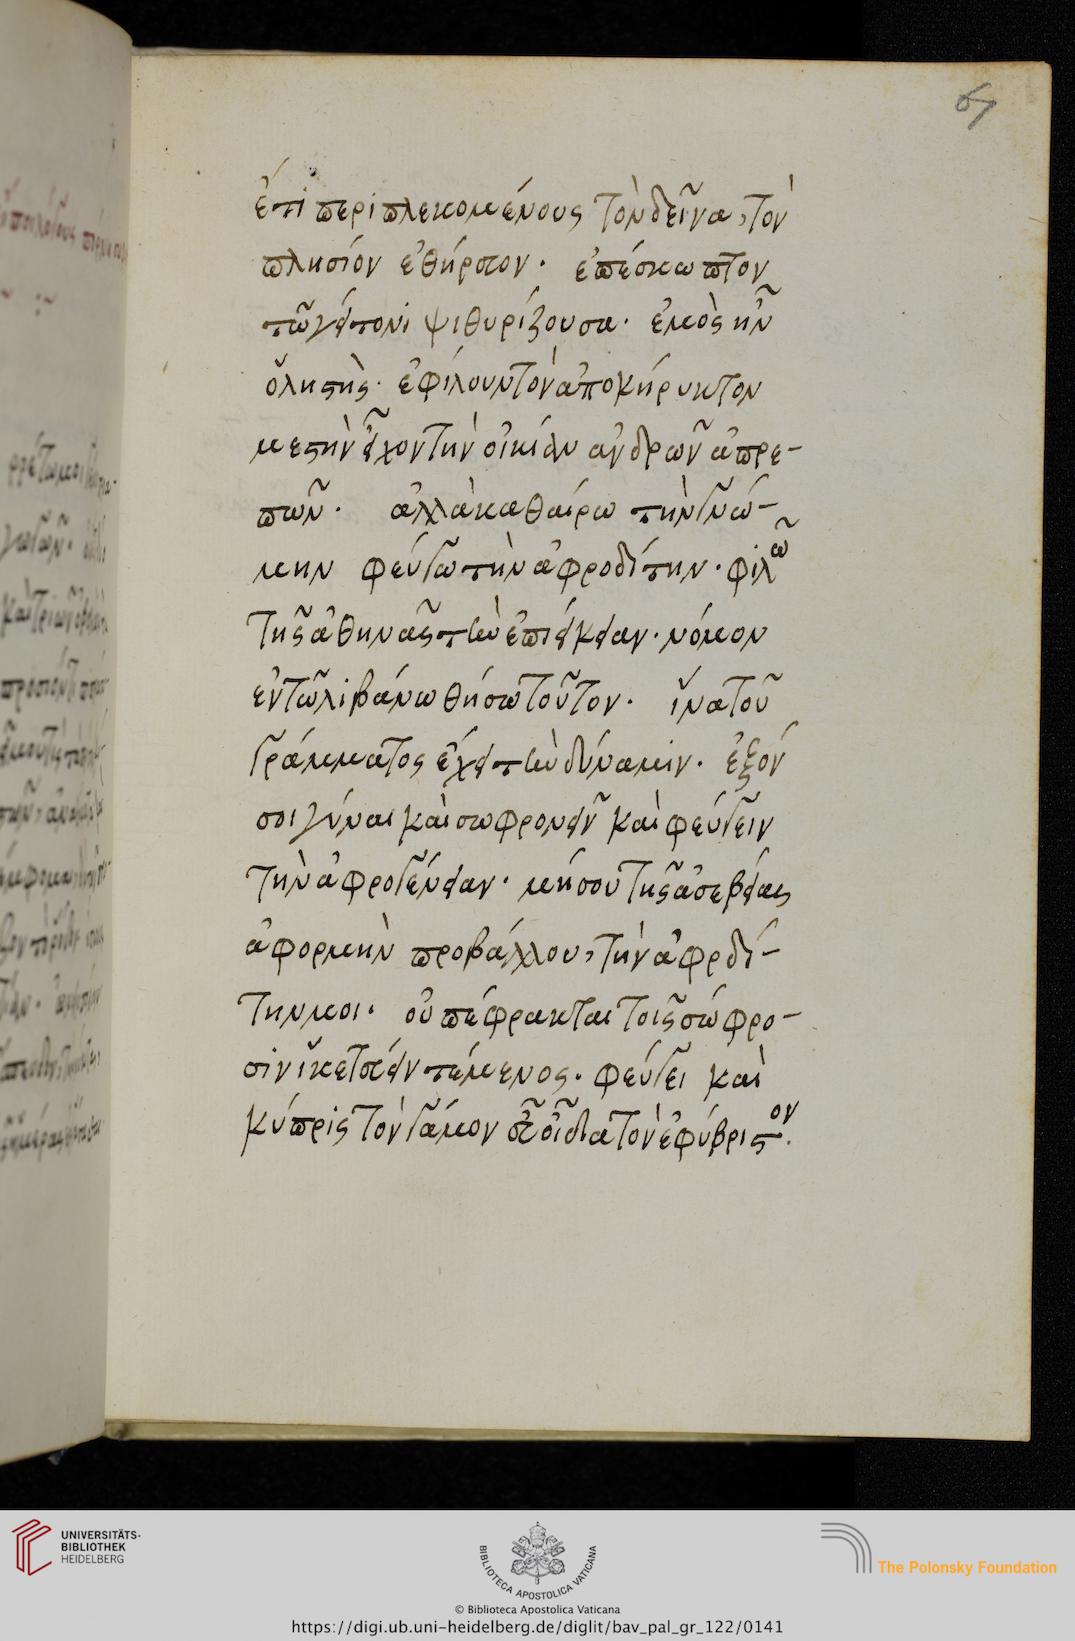 67
ἔτι περιπλεκομένους τὸν δεῖνα, τὸν
πλησίον ἐθήρσον. ἐπέσκωπτον
τῶ γείτονι ψιθυρίζουσα. ἐμὸς ἦν
ὁ ληστὴς. ἐφίλουν τὸν ἀποκήρυκτον
μεστὴν εἶχον τὴν οἰκίαν ἀνδρῶν ἀπρε-
πῶν. ἀλλὰ καθαίρω τὴν γνώ-
μην φεύγω τὴν ἀφροδίτην. φιλῶ
τῆς ἀθηνᾶς τὴν ἐπιείκειαν. νόμον
ἐν τῶ λιβάνω θήσω τοῦτον. ἵνα τοῦ
γράμματος ἔχη τὴν δύναμιν. ἐξόν
σοι γύναι καὶ σωφρονεῖν καὶ φεύγειν
τὴν ἀφρογένειαν. μή σου τῆς ἀσεβείας
ἀφορμὴν προβάλλου, τὴν ἀφρδί-
την μοι. οὐ πέφρακται τοῖς σώφρο-
σιν ἱκετεύειν τέμενος. φεύγει καὶ
κύπρις τὸν γάμον οἶδα τὸν ἐφύβριστον.
UNIVERSITÄTS-
BIBLIOTHEK
HEIDELBERG
BIBLIOTECA APOSTOLICA VATICANA
The Polonsky Foundation
© Biblioteca Apostolica Vaticana
https://digi.ub.uni-heidelberg.de/diglit/bav_pal_gr_122/0141